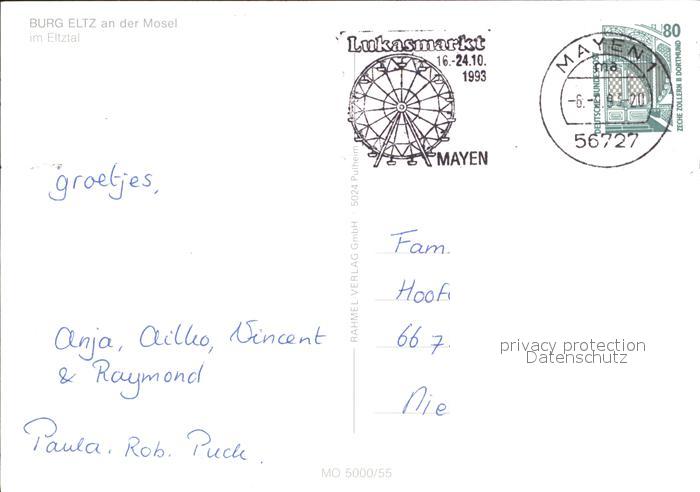 BURG ELTZ an der Mosel
im Eltztal
Lukasmarkt
16.-24.10.
1993
MAYEN
MAYEN 1
ma
56727
80
DEUTSCHE BUNDESPOST
ZECHE ZOLLERN II DORTMUND
groetjes,
Anja, Vincent
& Raymond
Paula. Rob. Puck.
RAHMEL VERLAG GmbH · 5024 Pulheim
Fam.
Hoof
66 7.
Nie
privacy protection
Datenschutz
MO 5000/55